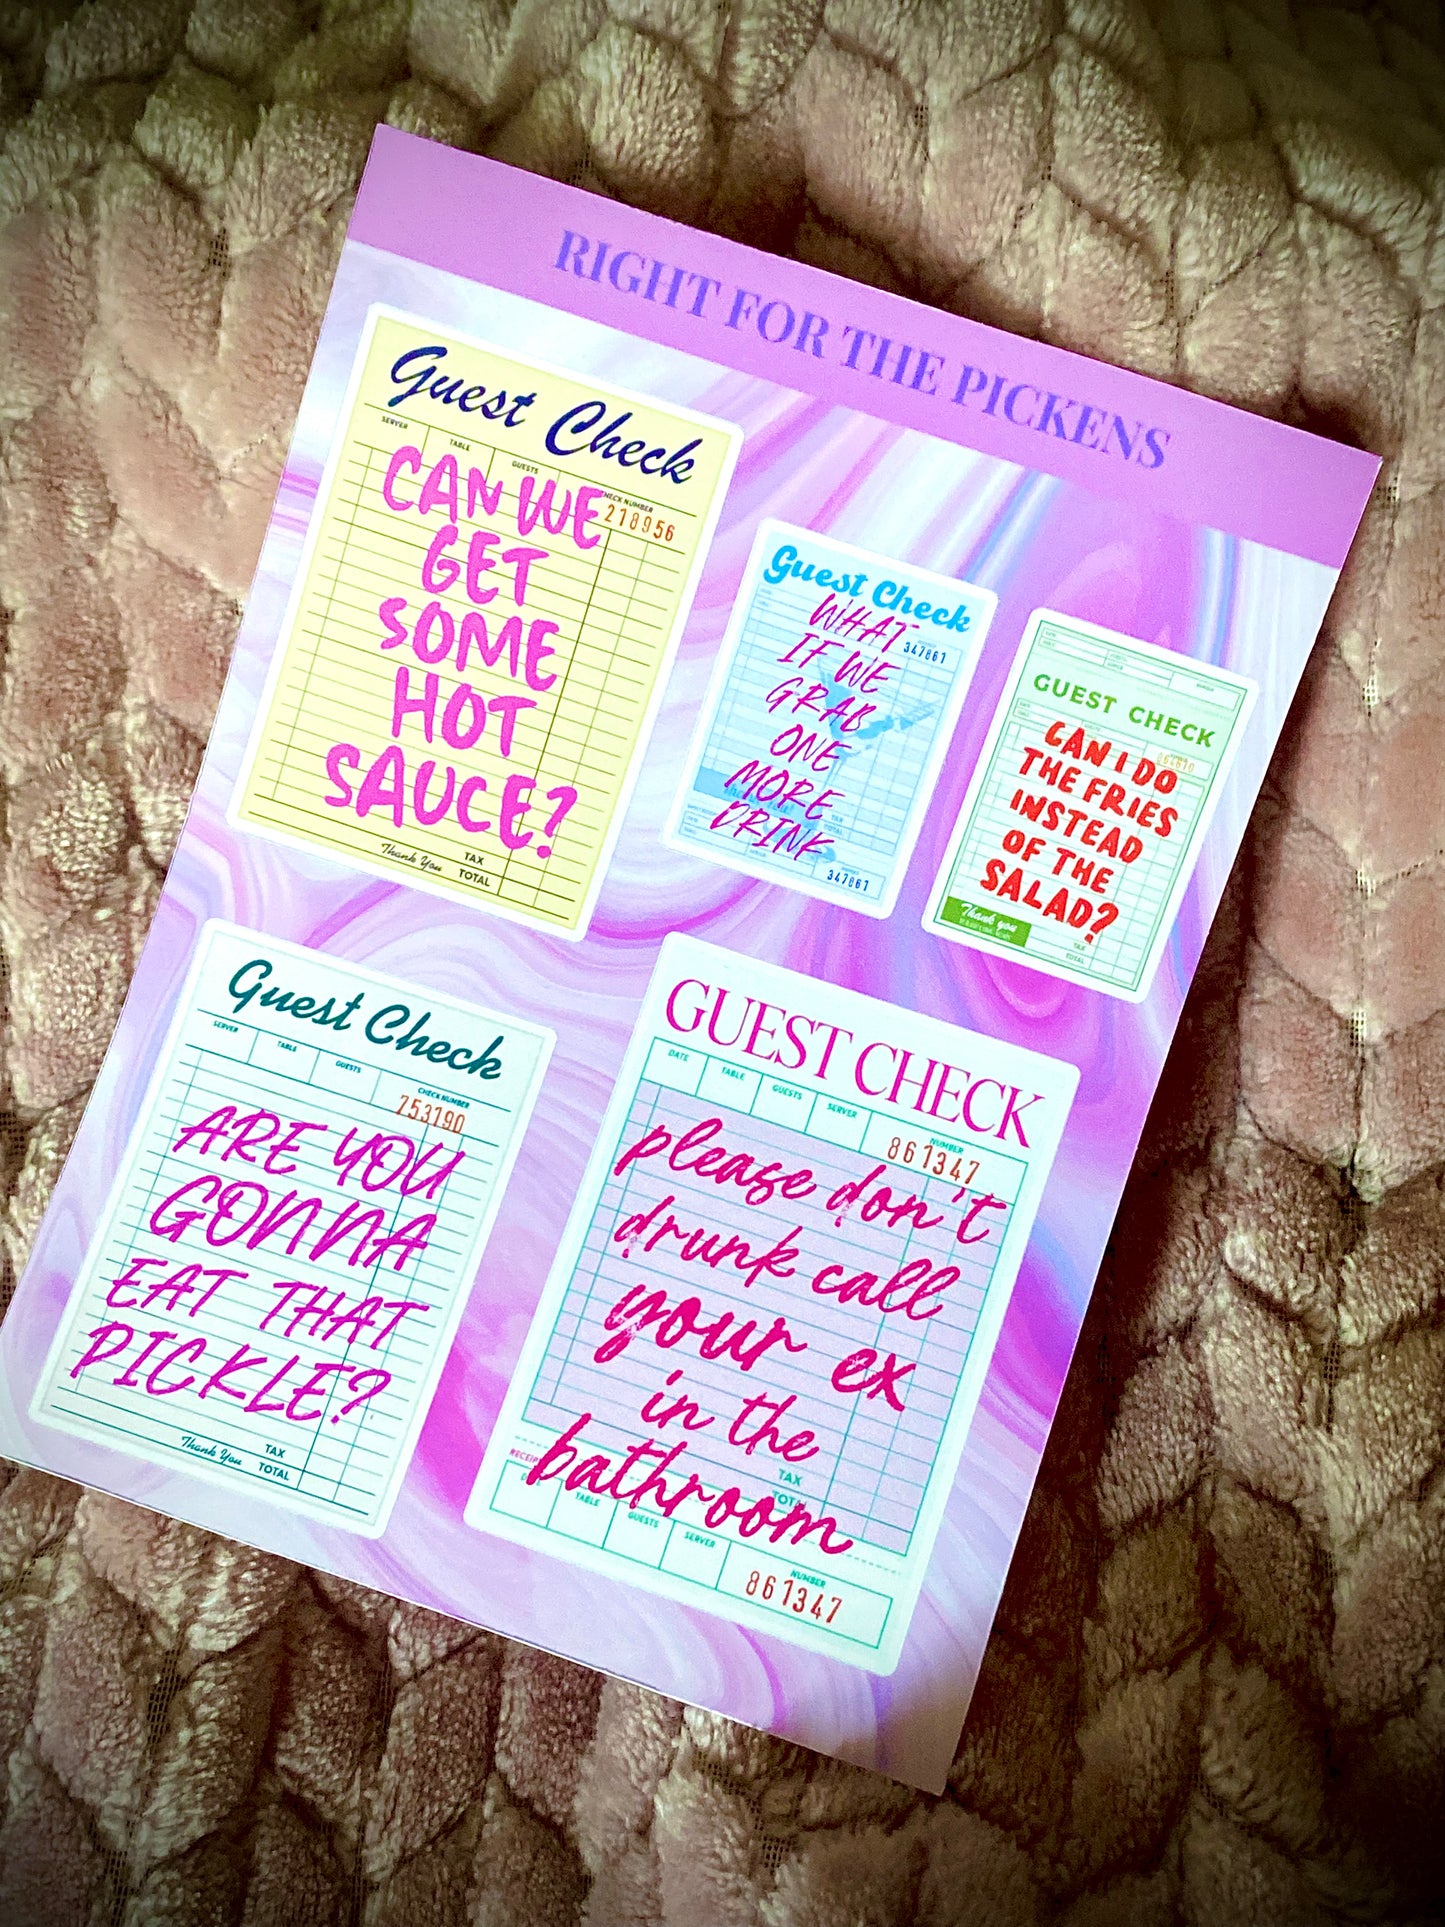 RIGHT FOR THE PICKENS
Guest Check
SERVER TABLE GUESTS CHECK NUMBER
218956
CAN WE
GET
SOME
HOT
SAUCE?
Thank You TAX
TOTAL
Guest Check
347861
WHAT
IF WE
GRAB
ONE
MORE
DRINK
TAX
TOTAL
347861
GUEST CHECK
CAN I DO
THE FRIES
INSTEAD
OF THE
SALAD?
Thank you
TAX
TOTAL
Guest Check
SERVER TABLE GUESTS CHECK NUMBER
753190
ARE YOU
GONNA
EAT THAT
PICKLE?
Thank You TAX
TOTAL
GUEST CHECK
DATE TABLE GUESTS SERVER NUMBER
861347
please don't
drunk call
your ex
in the
bathroom
TAX
TOTAL
RECEIPT
TABLE GUESTS SERVER NUMBER
861347